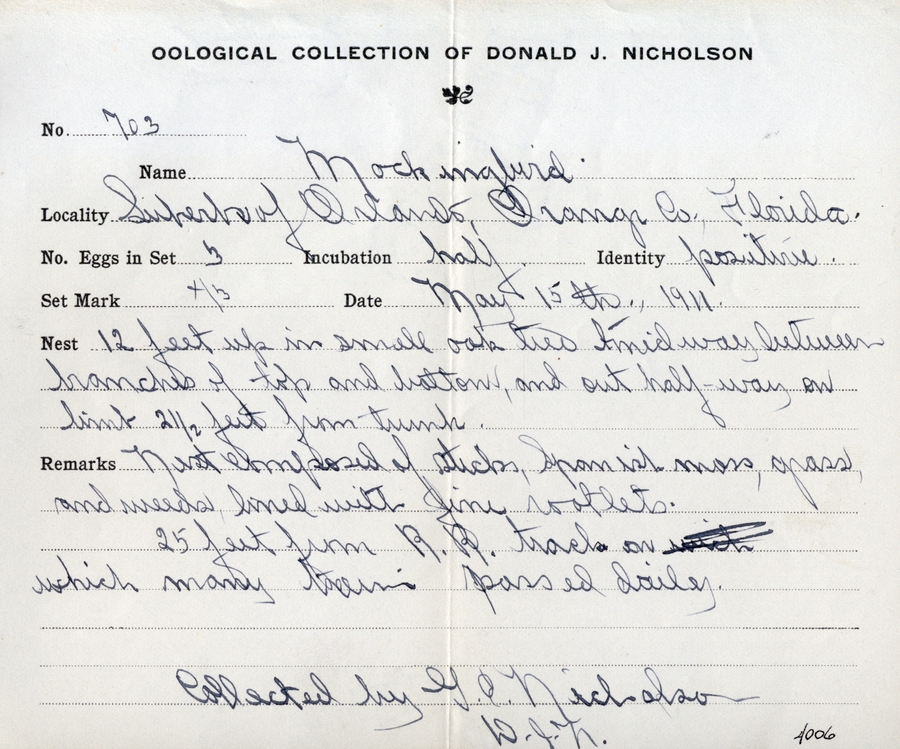 OOLOGICAL COLLECTION OF DONALD J. NICHOLSON
No. 703
Name Mockingbird
Locality Suberbs of Orlando, Orange Co., Florida.
No. Eggs in Set 3 Incubation half Identity positive.
Set Mark 4/3 Date May 15th., 1911.
Nest 12 feet up in small oak tree midway between
branches of top and bottom, and out half-way on
limb 2 1/2 feet from trunk.
Remarks Nest composed of sticks, Spanish moss, grass,
and weeds, lined with fine rootlets.
25 feet from R.R. track on
which many trains passed daily.
Collected by Nicholson
D.J.N.
4006